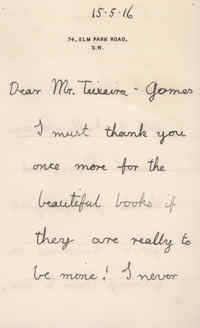 15-5-16
74, ELM PARK ROAD,
S.W.
Dear Mr. Teixeira - Gomes
I must thank you
once more for the
beautiful books if
they are really to
be mine! I never